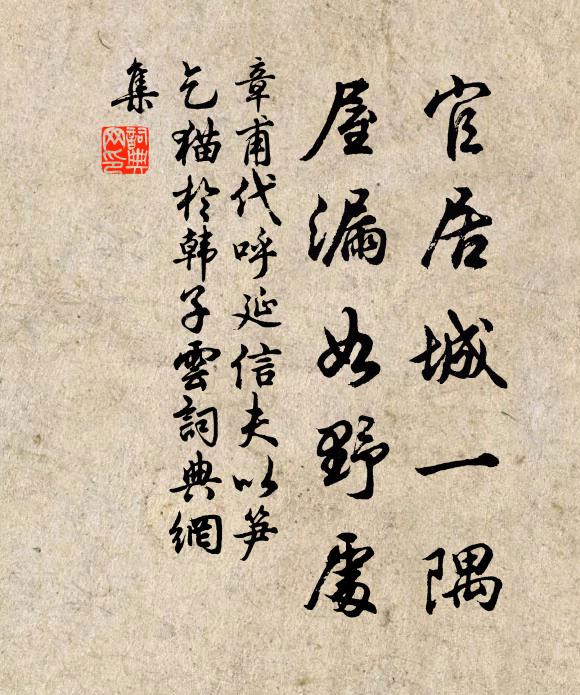 官居城一隅
屋漏如野處
章甫代呼延信夫以笋
乞猫於韩子雲詞典網
集
詞典
网印